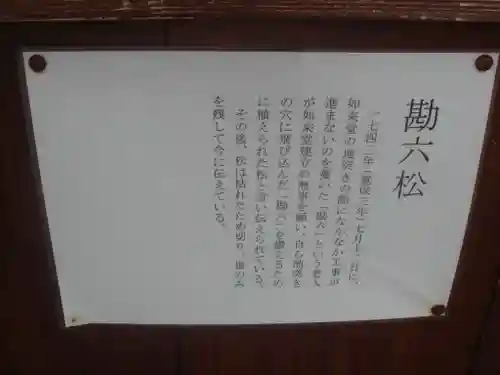 勘六松
一七四二年(寛保二年)七月十二日に、
如来堂の地突きの際になかなか工事が
進まないのを憂いた「勘六」という老人
が如来堂建立の無事を願い、自ら地突き
の穴に飛び込んだ「勘六」を讃えるため
に植えられた松と言い伝えられている。
その後、松は枯れたため切り、根のみ
を残して今に伝えている。